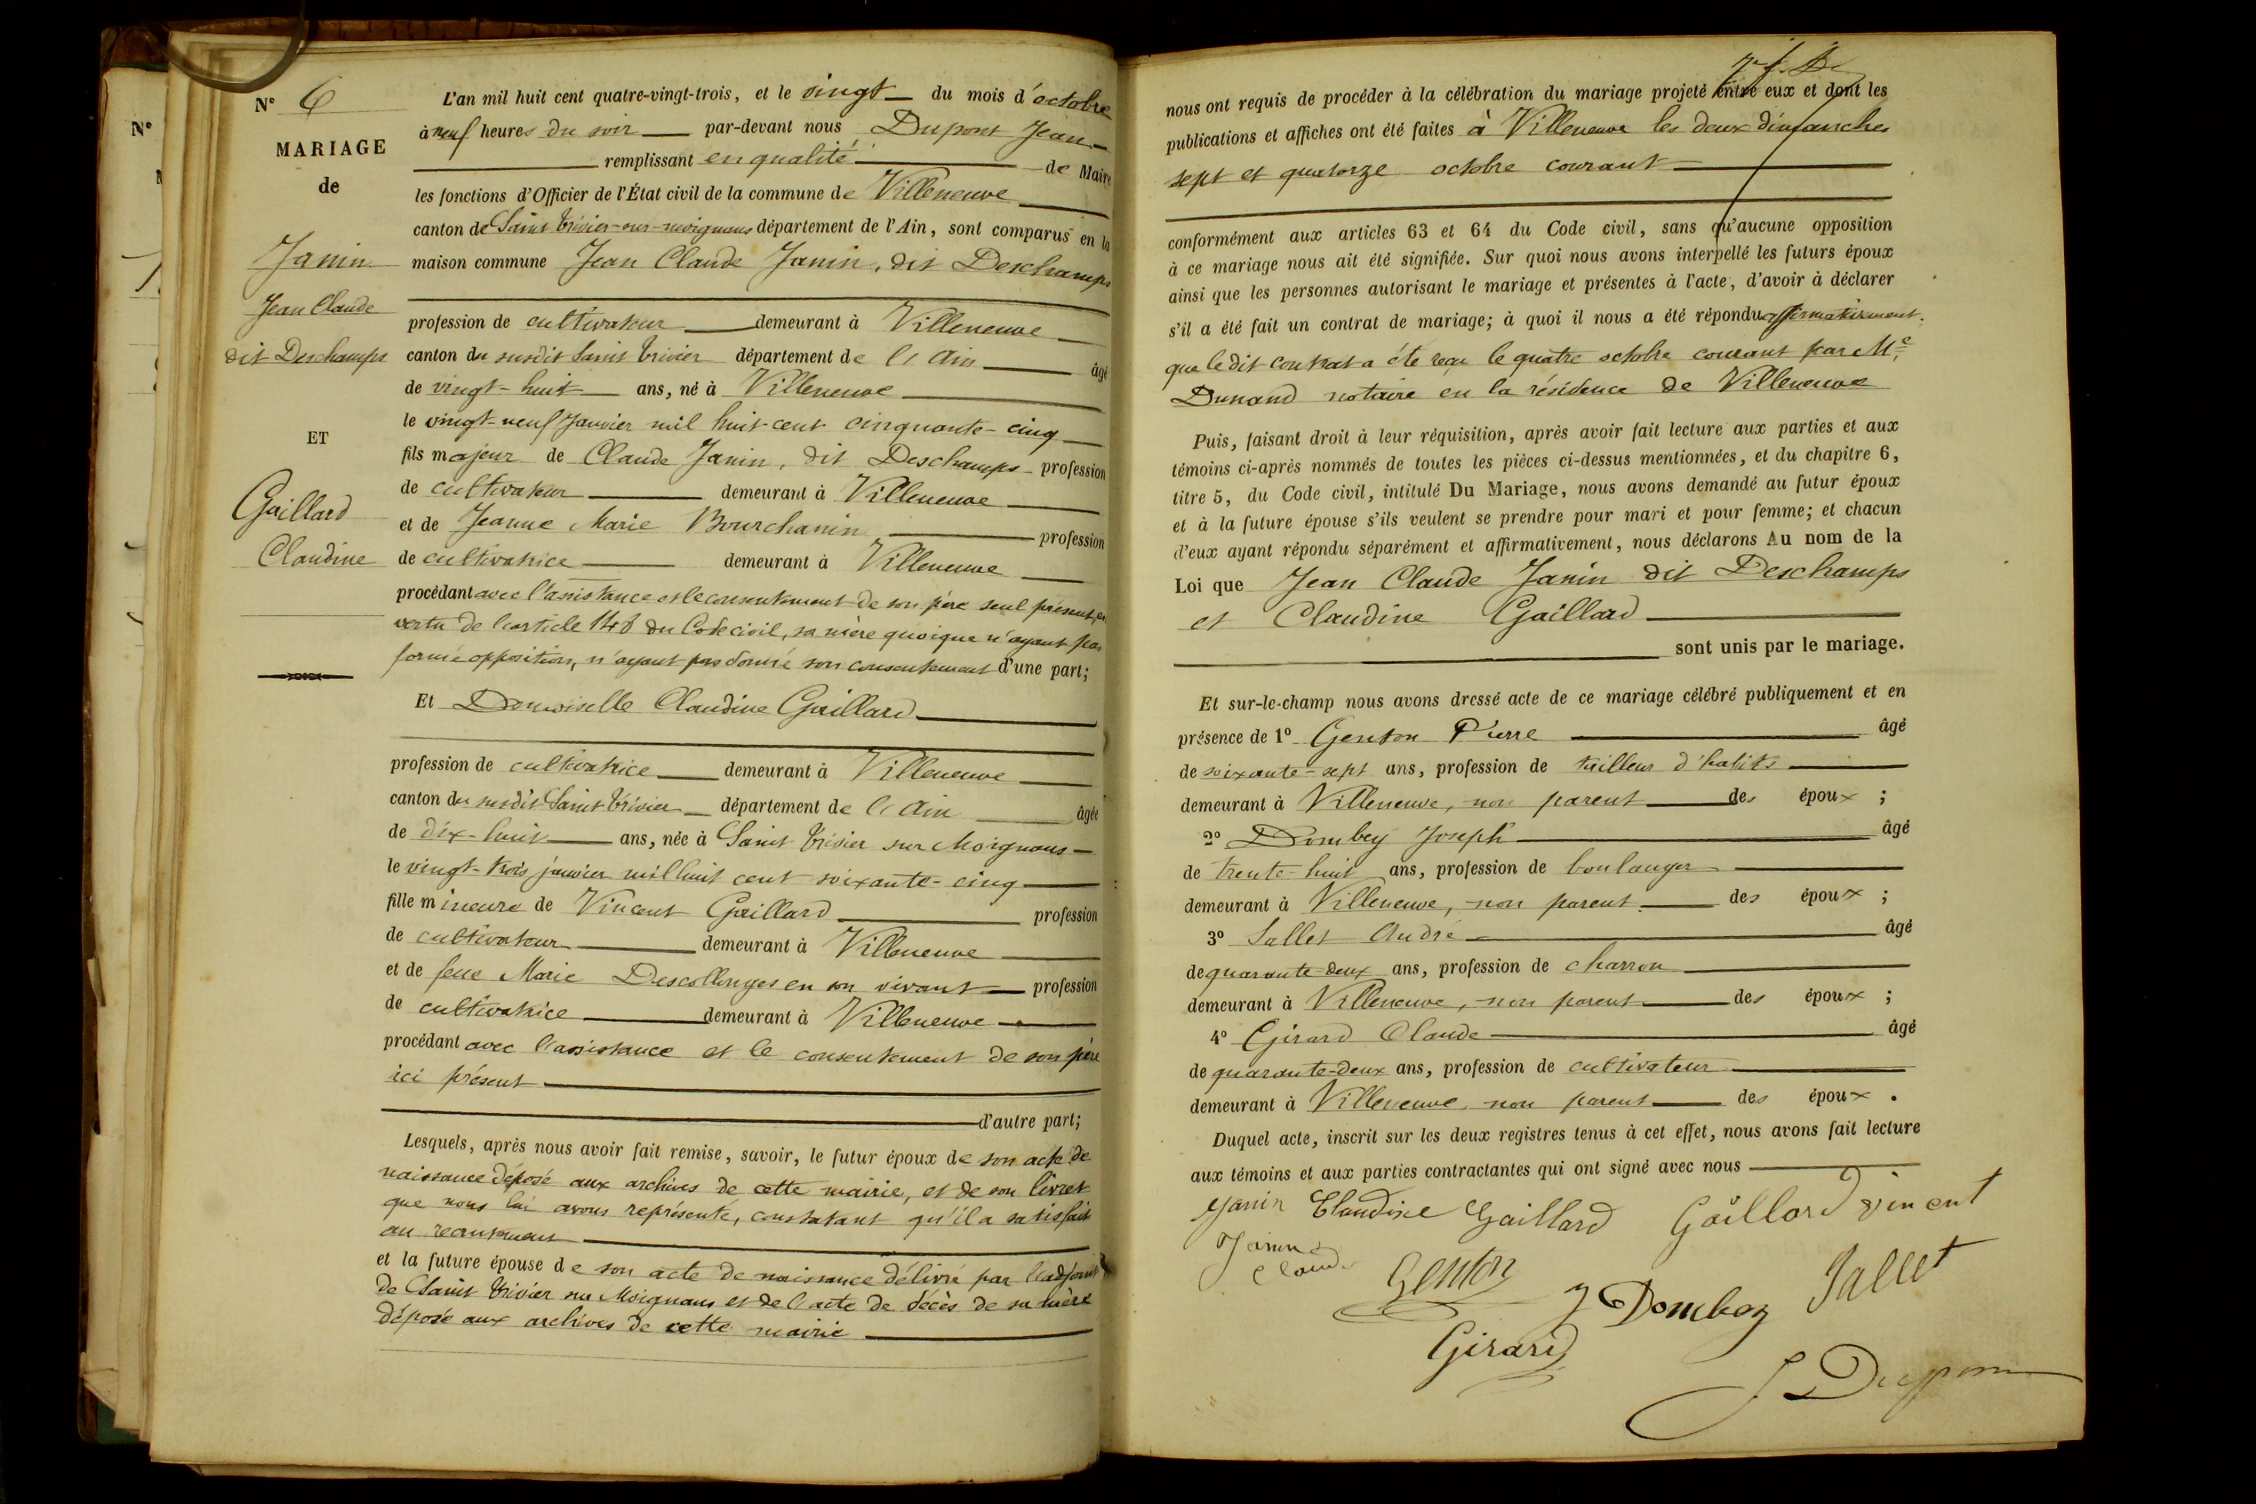 N° 6
MARIAGE
de
Janin
Jean Claude
dit Deschamps
ET
Gaillard
Claudine
N°
L'an mil huit cent quatre-vingt-trois, et le vingt du mois d'octobre
à neuf heures du soir par-devant nous Dupont Jean
remplissant en qualité de Maire
les fonctions d'Officier de l'État civil de la commune de Villeneuve
canton de Saint Trivier-sur-moignans département de l'Ain, sont comparus en la
maison commune Jean Claude Janin, dit Deschamps
profession de cultivateur demeurant à Villeneuve
canton du susdit Saint Trivier département de l'Ain âgé
de vingt-huit ans, né à Villeneuve
le vingt-neuf Janvier mil huit-cent cinquante-cinq
fils majeur de Claude Janin, dit Deschamps profession
de cultivateur demeurant à Villeneuve
et de Jeanne Marie Bourchanin profession
de cultivatrice demeurant à Villeneuve
procédant avec l'assistance et le consentement de son père seul présent, en
vertu de l'article 148 du Code civil, sa mère quoique n'ayant pas
formé opposition, n'ayant pas donné son consentement d'une part;
Et Demoiselle Claudine Gaillard
profession de cultivatrice demeurant à Villeneuve
canton du susdit Saint Trivier département de l'Ain âgée
de dix-huit ans, née à Saint Trivier sur Moignans
le vingt-trois janvier mil huit cent soixante-cinq
fille mineure de Vincent Gaillard profession
de cultivateur demeurant à Villeneuve
et de feue Marie Descollonges en son vivant profession
de cultivatrice demeurant à Villeneuve
procédant avec l'assistance et le consentement de son père
ici présent
d'autre part;
Lesquels, après nous avoir fait remise, savoir, le futur époux de son acte de
naissance déposé aux archives de cette mairie, et de son livret
que nous lui avons représenté, constatant qu'il a satisfait
au recrutement
et la future épouse de son acte de naissance délivré par l'adjoint
de Saint Trivier sur Moignans et de l'acte de décès de sa mère
déposé aux archives de cette mairie
nous ont requis de procéder à la célébration du mariage projeté entre eux et dont les
publications et affiches ont été faites à Villeneuve les deux dimanches
sept et quatorze octobre courant
conformément aux articles 63 et 64 du Code civil, sans qu'aucune opposition
à ce mariage nous ait été signifiée. Sur quoi nous avons interpellé les futurs époux
ainsi que les personnes autorisant le mariage et présentes à l'acte, d'avoir à déclarer
s'il a été fait un contrat de mariage; à quoi il nous a été répondu affirmativement.
que le dit contrat a été reçu le quatre octobre courant par Me
Dunand notaire en la résidence de Villeneuve
Puis, faisant droit à leur réquisition, après avoir fait lecture aux parties et aux
témoins ci-après nommés de toutes les pièces ci-dessus mentionnées, et du chapitre 6,
titre 5, du Code civil, intitulé Du Mariage, nous avons demandé au futur époux
et à la future épouse s'ils veulent se prendre pour mari et pour femme; et chacun
d'eux ayant répondu séparément et affirmativement, nous déclarons Au nom de la
Loi que Jean Claude Janin dit Deschamps
et Claudine Gaillard
sont unis par le mariage.
Et sur-le-champ nous avons dressé acte de ce mariage célébré publiquement et en
présence de 1° Genton Pierre âgé
de soixante-sept ans, profession de tailleur d'habits
demeurant à Villeneuve, non parent des époux ;
2° Dombey Joseph âgé
de trente-huit ans, profession de boulanger
demeurant à Villeneuve, non parent des époux ;
3° Sallet André âgé
de quarante-deux ans, profession de charron
demeurant à Villeneuve, non parent des époux ;
4° Girard Claude âgé
de quarante-deux ans, profession de cultivateur
demeurant à Villeneuve, non parent des époux .
Duquel acte, inscrit sur les deux registres tenus à cet effet, nous avons fait lecture
aux témoins et aux parties contractantes qui ont signé avec nous
Janin Claudine Gaillard Gaillard vincent
Janin Claude
Genton J Dombey Sallet
Girard
J Dupont